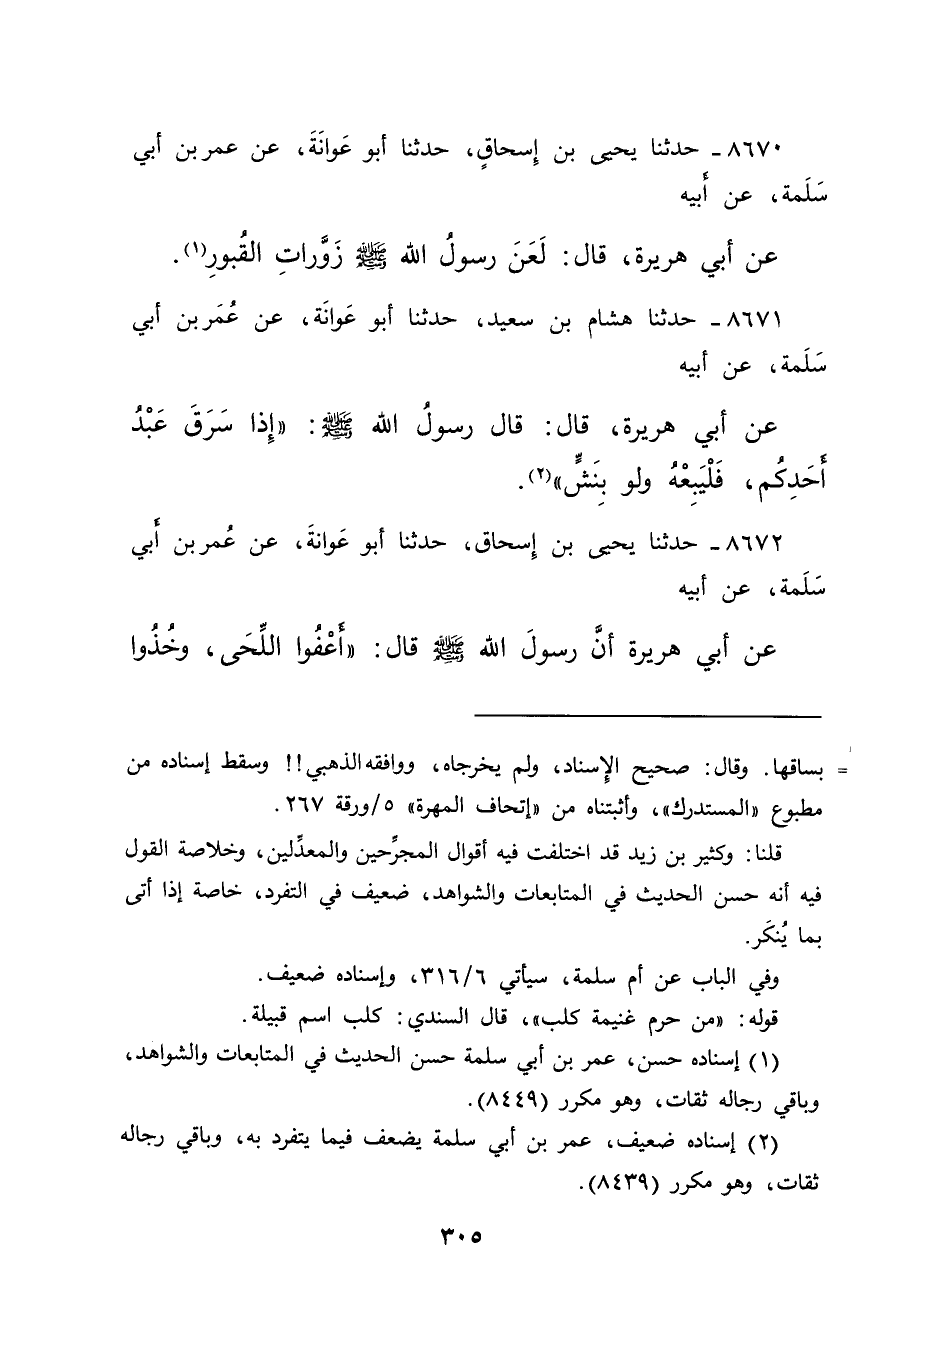 ٨٦٧٠ ـ حدثنا يحيى بن إِسحاقٍ، حدثنا أبو عَوانَةَ، عن عمر بن أبي
سَلَمة، عن أَبيه
عن أبي هريرة، قال: لَعَنَ رسولُ الله ﷺ زَوَّراتِ القُبورِ(١).
٨٦٧١ ـ حدثنا هشام بن سعيد، حدثنا أبو عَوانَة، عن عُمَر بن أبي
سَلَمة، عن أبيه
عن أبي هريرة، قال: قال رسولُ الله ﷺ: «إِذا سَرَقَ عَبْدُ
أَحَدِكُم، فَلْيَبِعْهُ ولو بِنَشٍّ»(٢).
٨٦٧٢ ـ حدثنا يحيى بن إِسحاق، حدثنا أبو عَوانةَ، عن عُمر بن أَبي
سَلَمة، عن أبيه
عن أبي هريرة أنَّ رسولَ الله ﷺ قال: «أَعْفُوا اللِّحَى، وخُذُوا
= بساقها. وقال: صحيح الإِسناد، ولم يخرجاه، ووافقه الذهبي!! وسقط إسناده من
مطبوع «المستدرك»، وأثبتناه من «إتحاف المهرة» ٥/ورقة ٢٦٧.
قلنا: وكثير بن زيد قد اختلفت فيه أقوال المجرِّحين والمعدِّلين، وخلاصة القول
فيه أنه حسن الحديث في المتابعات والشواهد، ضعيف في التفرد، خاصة إذا أتى
بما يُنكَر.
وفي الباب عن أم سلمة، سيأتي ٣١٦/٦، وإسناده ضعيف.
قوله: «من حرم غنيمة كلب»، قال السندي: كلب اسم قبيلة.
(١) إسناده حسن، عمر بن أبي سلمة حسن الحديث في المتابعات والشواهد،
وباقي رجاله ثقات، وهو مكرر (٨٤٤٩).
(٢) إسناده ضعيف، عمر بن أبي سلمة يضعف فيما يتفرد به، وباقي رجاله
ثقات، وهو مكرر (٨٤٣٩).
٣٠٥